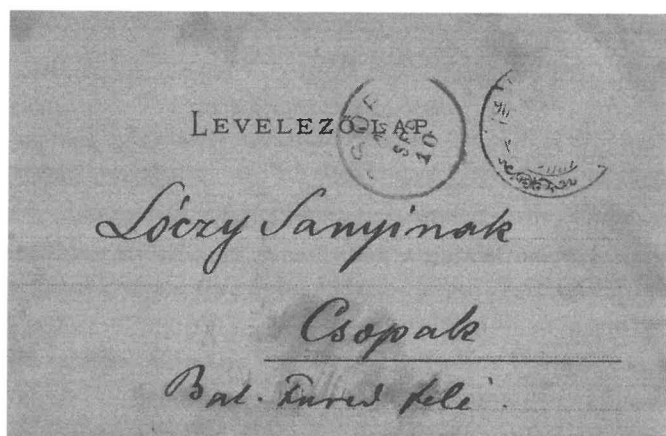 LEVELEZŐ-LAP
Lóczy Sanyinak
Csopak
Bal. Füred felé.